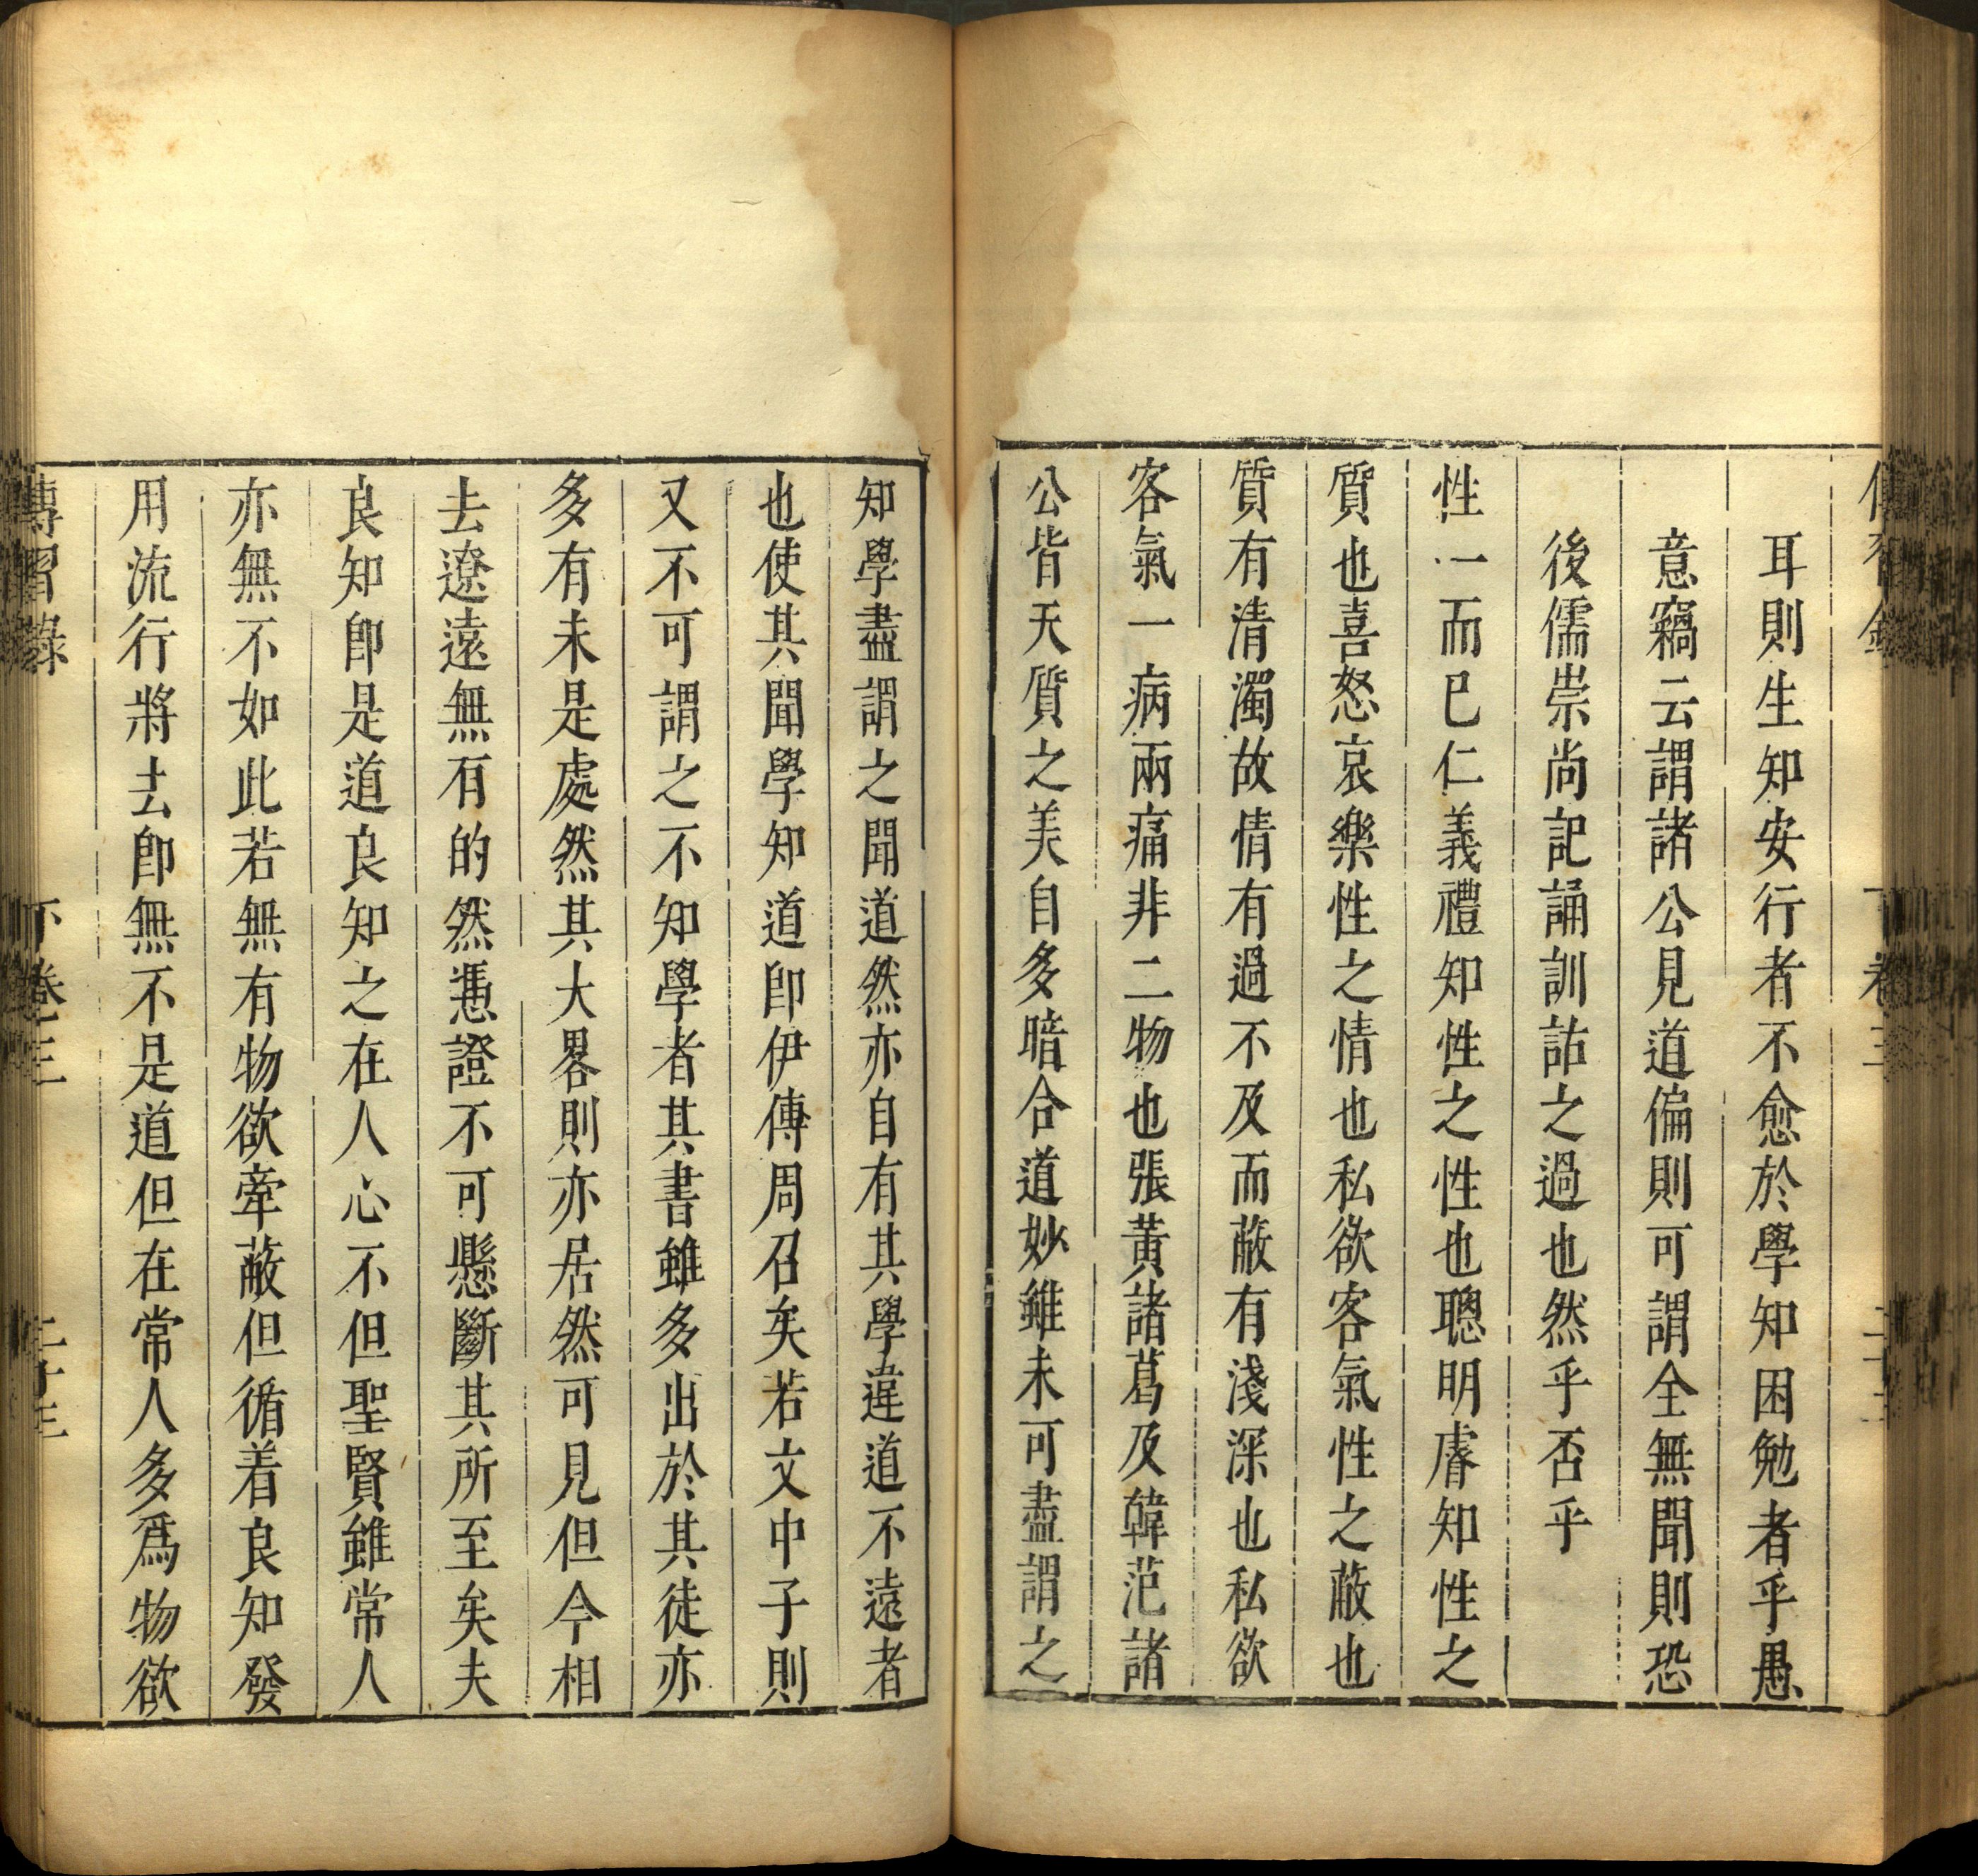 耳則生知安行者不愈於學知困勉者乎愚
意竊云謂諸公見道偏則可謂全無聞則恐
後儒崇尚記誦訓詁之過也然乎否乎
性一而已仁義禮知性之性也聰明睿知性之
質也喜怒哀樂性之情也私欲客氣性之蔽也
質有清濁故情有過不及而蔽有淺深也私欲
客氣一病兩痛非二物也張黃諸葛及韓范諸
公皆天質之美自多暗合道妙雖未可盡謂之
知學盡謂之聞道然亦自有其學違道不遠者
也使其聞學知道即伊傅周召矣若文中子則
又不可謂之不知學者其書雖多出於其徒亦
多有未是處然其大畧則亦居然可見但今相
去遼遠無有的然憑證不可懸斷其所至矣夫
良知即是道良知之在人心不但聖賢雖常人
亦無不如此若無有物欲牽蔽但循着良知發
用流行將去即無不是道但在常人多爲物欲
傳習錄 下卷三 二十三